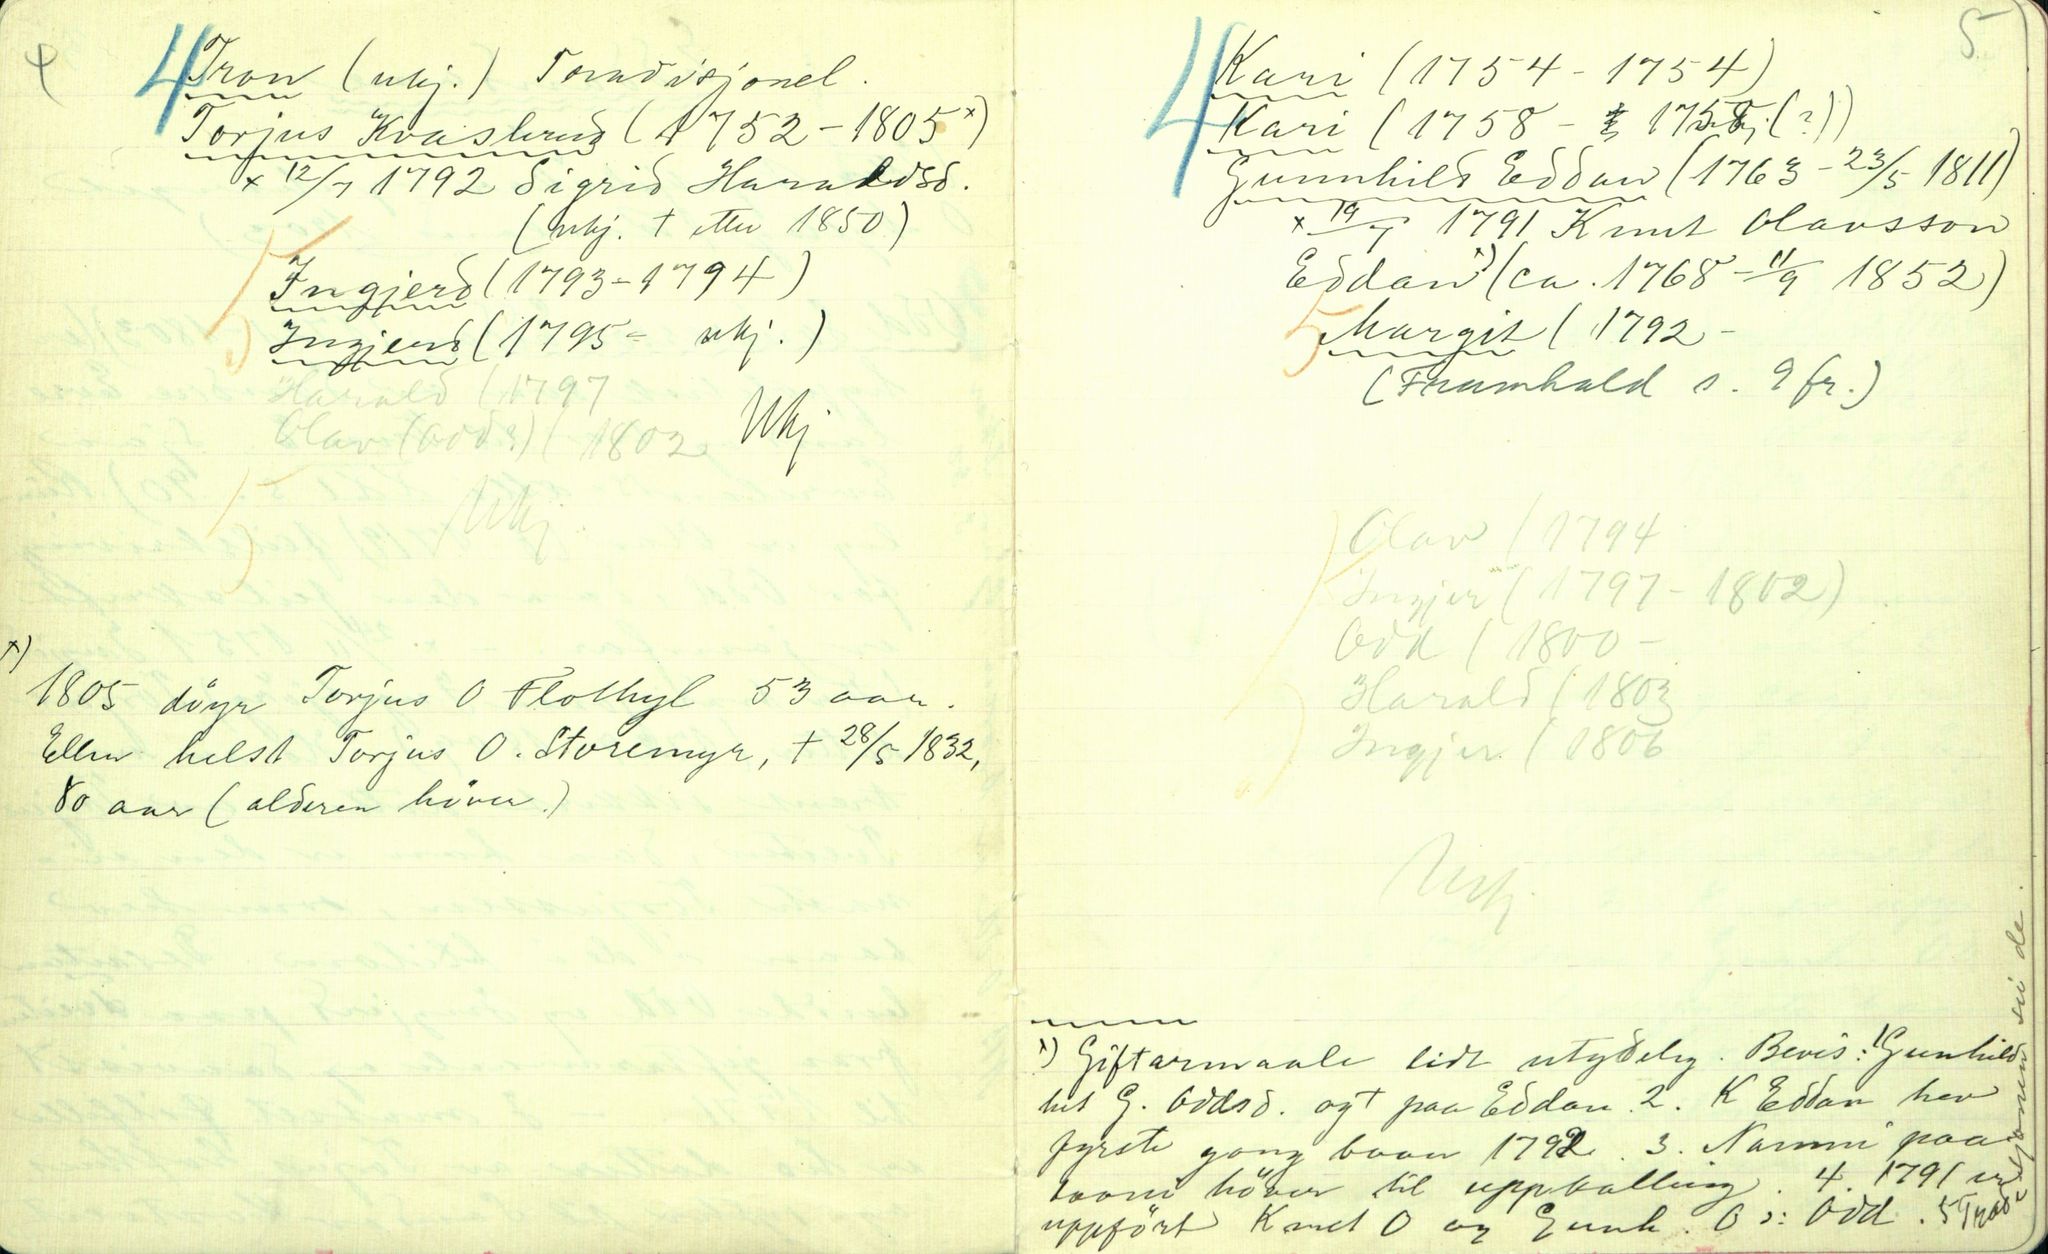 4
4 Tron (ukj.) Toradisjonel.
Torjus Kvaslund (1752 - 1805 x)
x 12/7 1792 Sigrid Haraldsd.
(ukj. † etter 1850)
5 Ingjerd (1793 - 1794)
5 Ingjerd (1795 - ukj.)
Harald (1797
Olav (Odd?) (1802 Ukj
5 Ukj.
x)
1805 döyr Torjus O Flothyl 53 aar.
Eller helst Torjus O. Storemyr, † 28/5 1832,
80 aar (alderen höver.)
5
4 Kari (1754 - 1754)
Kari (1758 - (?))
Gunnhild Eddan (1763 - 23/5 1811)
x 19/7 1791 Knut Olavsson
Eddan x) (ca. 1768 - 11/9 1852)
5 Margit (1792 -
(Framhald s. 9 fr.)
Olav (1794
Ingjer (1797 - 1802)
Odd (1800 -
Harald (1803
Ingjer (1806
Ukj.
x) Giftarmaale lidt utydeleg. Bevis: 1 Gunhild
het G. Oddsd. og † paa Eddan. 2. K Eddan hev
fyrste gong baan 1792. 3. Namni paa
baani höver til uppkalling. 4. 1791 er
uppfört Knut O og Gunh. O ɔ: Odd. 5 Tradisjonen sei de.